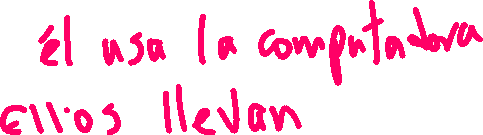 él usa la computadora
Ellos llevan